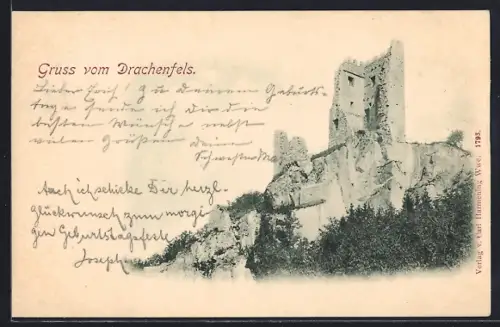 Gruss vom Drachenfels.
Lieber ! Zu Deinem Geburts-
tage sende ich Dir die
besten Wünsche nebst
vielen Grüßen Deine
Schwester
Auch ich schicke Dir herzl.
Glückwunsch zum morgi-
gen Geburtstagsfeste
Josephine
1792.
Verlag v. Carl Hamming Wwe.